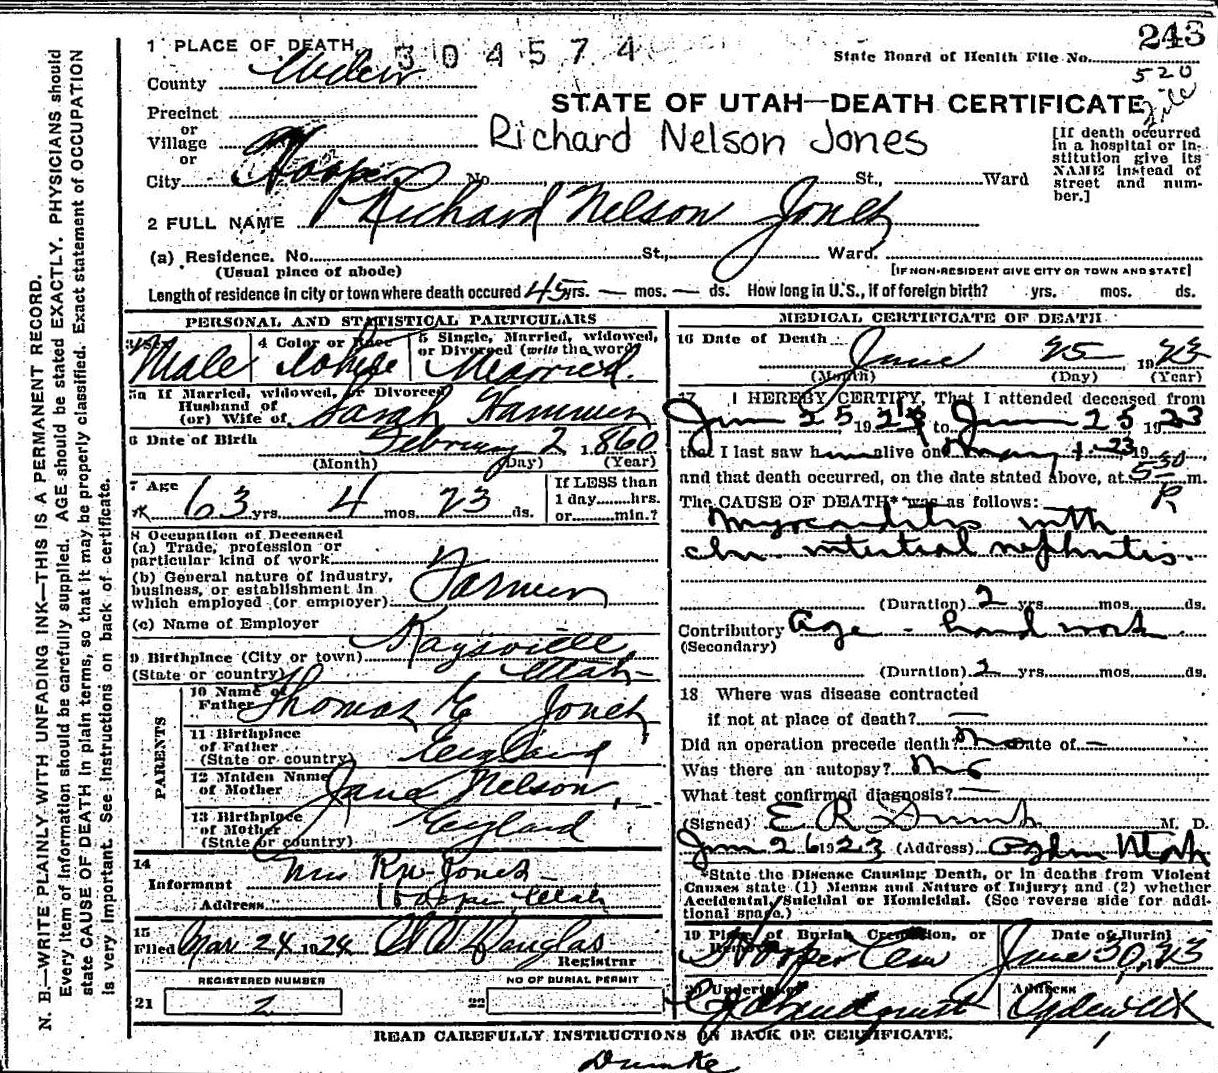 243
1 PLACE OF DEATH 304574
State Board of Health File No.
520
County Weber
File
STATE OF UTAH—DEATH CERTIFICATE
Precinct
or
Village
or
Richard Nelson Jones
[If death occurred
in a hospital or in-
stitution give its
NAME instead of
street and num-
ber.]
City Hooper No. St., Ward
2 FULL NAME Richard Nelson Jones
(a) Residence. No. St., Ward.
(Usual place of abode) [IF NON-RESIDENT GIVE CITY OR TOWN AND STATE]
Length of residence in city or town where death occured 45 yrs. — mos. — ds. How long in U.S., if of foreign birth? yrs. mos. ds.
PERSONAL AND STATISTICAL PARTICULARS
3 Sex Male
4 Color or Race White
5 Single, Married, widowed,
or Divorced (write the word)
Married.
5a If Married, widowed, or Divorced
Husband of
(or) Wife of Sarah Hammer
6 Date of Birth February 2 1860
(Month) (Day) (Year)
7 Age 63 yrs. 4 mos. 23 ds.
If LESS than
1 day hrs.
or min.?
8 Occupation of Deceased
(a) Trade, profession or
particular kind of work
(b) General nature of industry,
business, or establishment in
which employed (or employer) Farmer
(c) Name of Employer
9 Birthplace (City or town) Kaysville
(State or country) Utah
PARENTS
10 Name of
Father Thomas E Jones
11 Birthplace
of Father
(State or country) England
12 Maiden Name
of Mother Jane Nelson,
13 Birthplace
of Mother
(State or country) England
14
Informant Mrs R N Jones
Address Hooper, Utah
15
Filed Mar 24 1924 Douglas
Registrar
REGISTERED NUMBER
21 2
NO OF BURIAL PERMIT
22
MEDICAL CERTIFICATE OF DEATH
16 Date of Death June 25 1923
(Month) (Day) (Year)
17 I HEREBY CERTIFY, That I attended deceased from
25 19 to June 25 1923
that I last saw him alive on May 1-23 19
and that death occurred, on the date stated above, at 530 m.
P
The CAUSE OF DEATH* was as follows:
Myocarditis with
chr. intestial nephritis.
(Duration) 2 yrs. mos. ds.
Contributory Age - hard work
(Secondary)
(Duration) 2 yrs. mos. ds.
18 Where was disease contracted
if not at place of death? —
Did an operation precede death? No Date of —
Was there an autopsy? No
What test confirmed diagnosis? —
(Signed) E R Dumke M. D.
Jun 26 1923 (Address) Ogden Utah
*State the Disease Causing Death, or in deaths from Violent
Causes state (1) Means and Nature of Injury; and (2) whether
Accidental, Suicidal or Homicidal. (See reverse side for addi-
tional space.)
19 Place of Burial Cremation, or
Removal Hooper Cem
Date of Burial
June 30, 1923
20 Undertaker
Lindquist
Address
Ogden Ut
READ CAREFULLY INSTRUCTIONS ON BACK OF CERTIFICATE.
Dumke
N. B.—WRITE PLAINLY WITH UNFADING INK—THIS IS A PERMANENT RECORD.
Every item of information should be carefully supplied. AGE should be stated EXACTLY. PHYSICIANS should
state CAUSE OF DEATH in plain terms, so that it may be properly classified. Exact statement of OCCUPATION
is very important. See instructions on back of certificate.